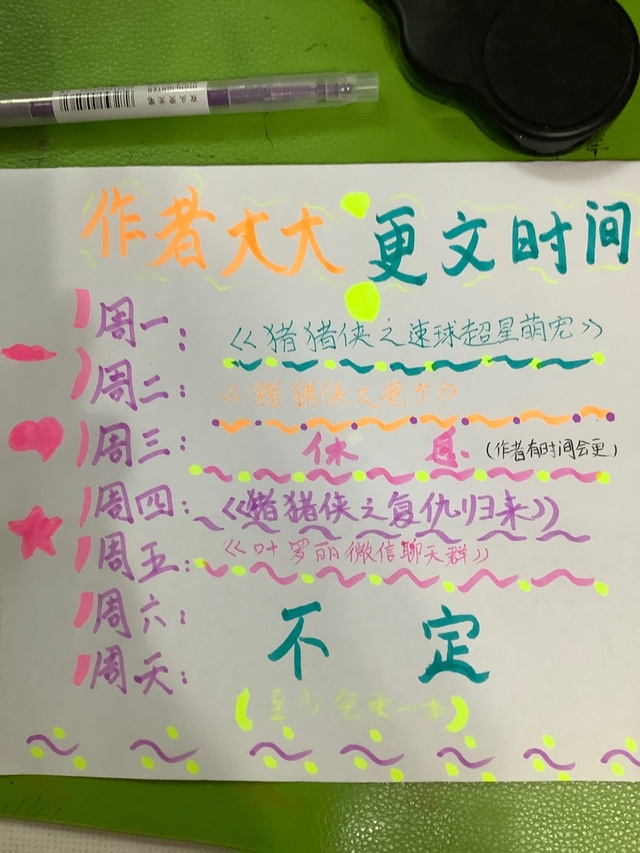 双头荧光笔
HIGHLIGHTER
作者大大 更文时间
周一：《猪猪侠之速球超星萌宠》
周二：《猪猪侠之竞于》
周三：休 息. (作者有时间会更)
周四：《猪猪侠之复仇归来》
周五：《叶罗丽微信聊天群》
周六：
不 定
周天：
(至少会更一本)